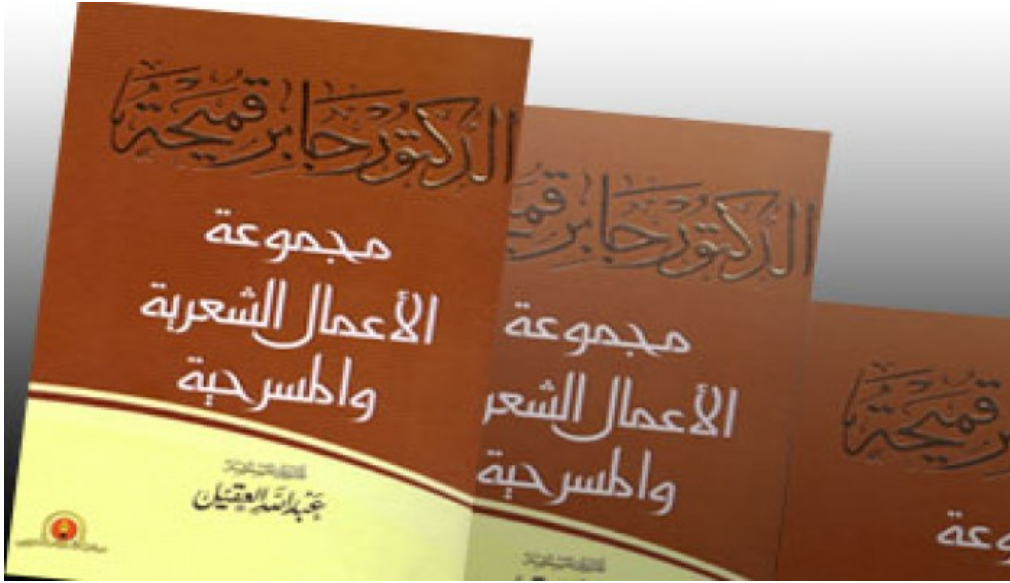 الدكتور جابر قميحة
مجموعة
الأعمال الشعرية
والمسرحية
عبدالله العقيل
الدكتور جابر قم
مجموعة
الأعمال الشعر
والمسرحية
بر قميحة
وعة